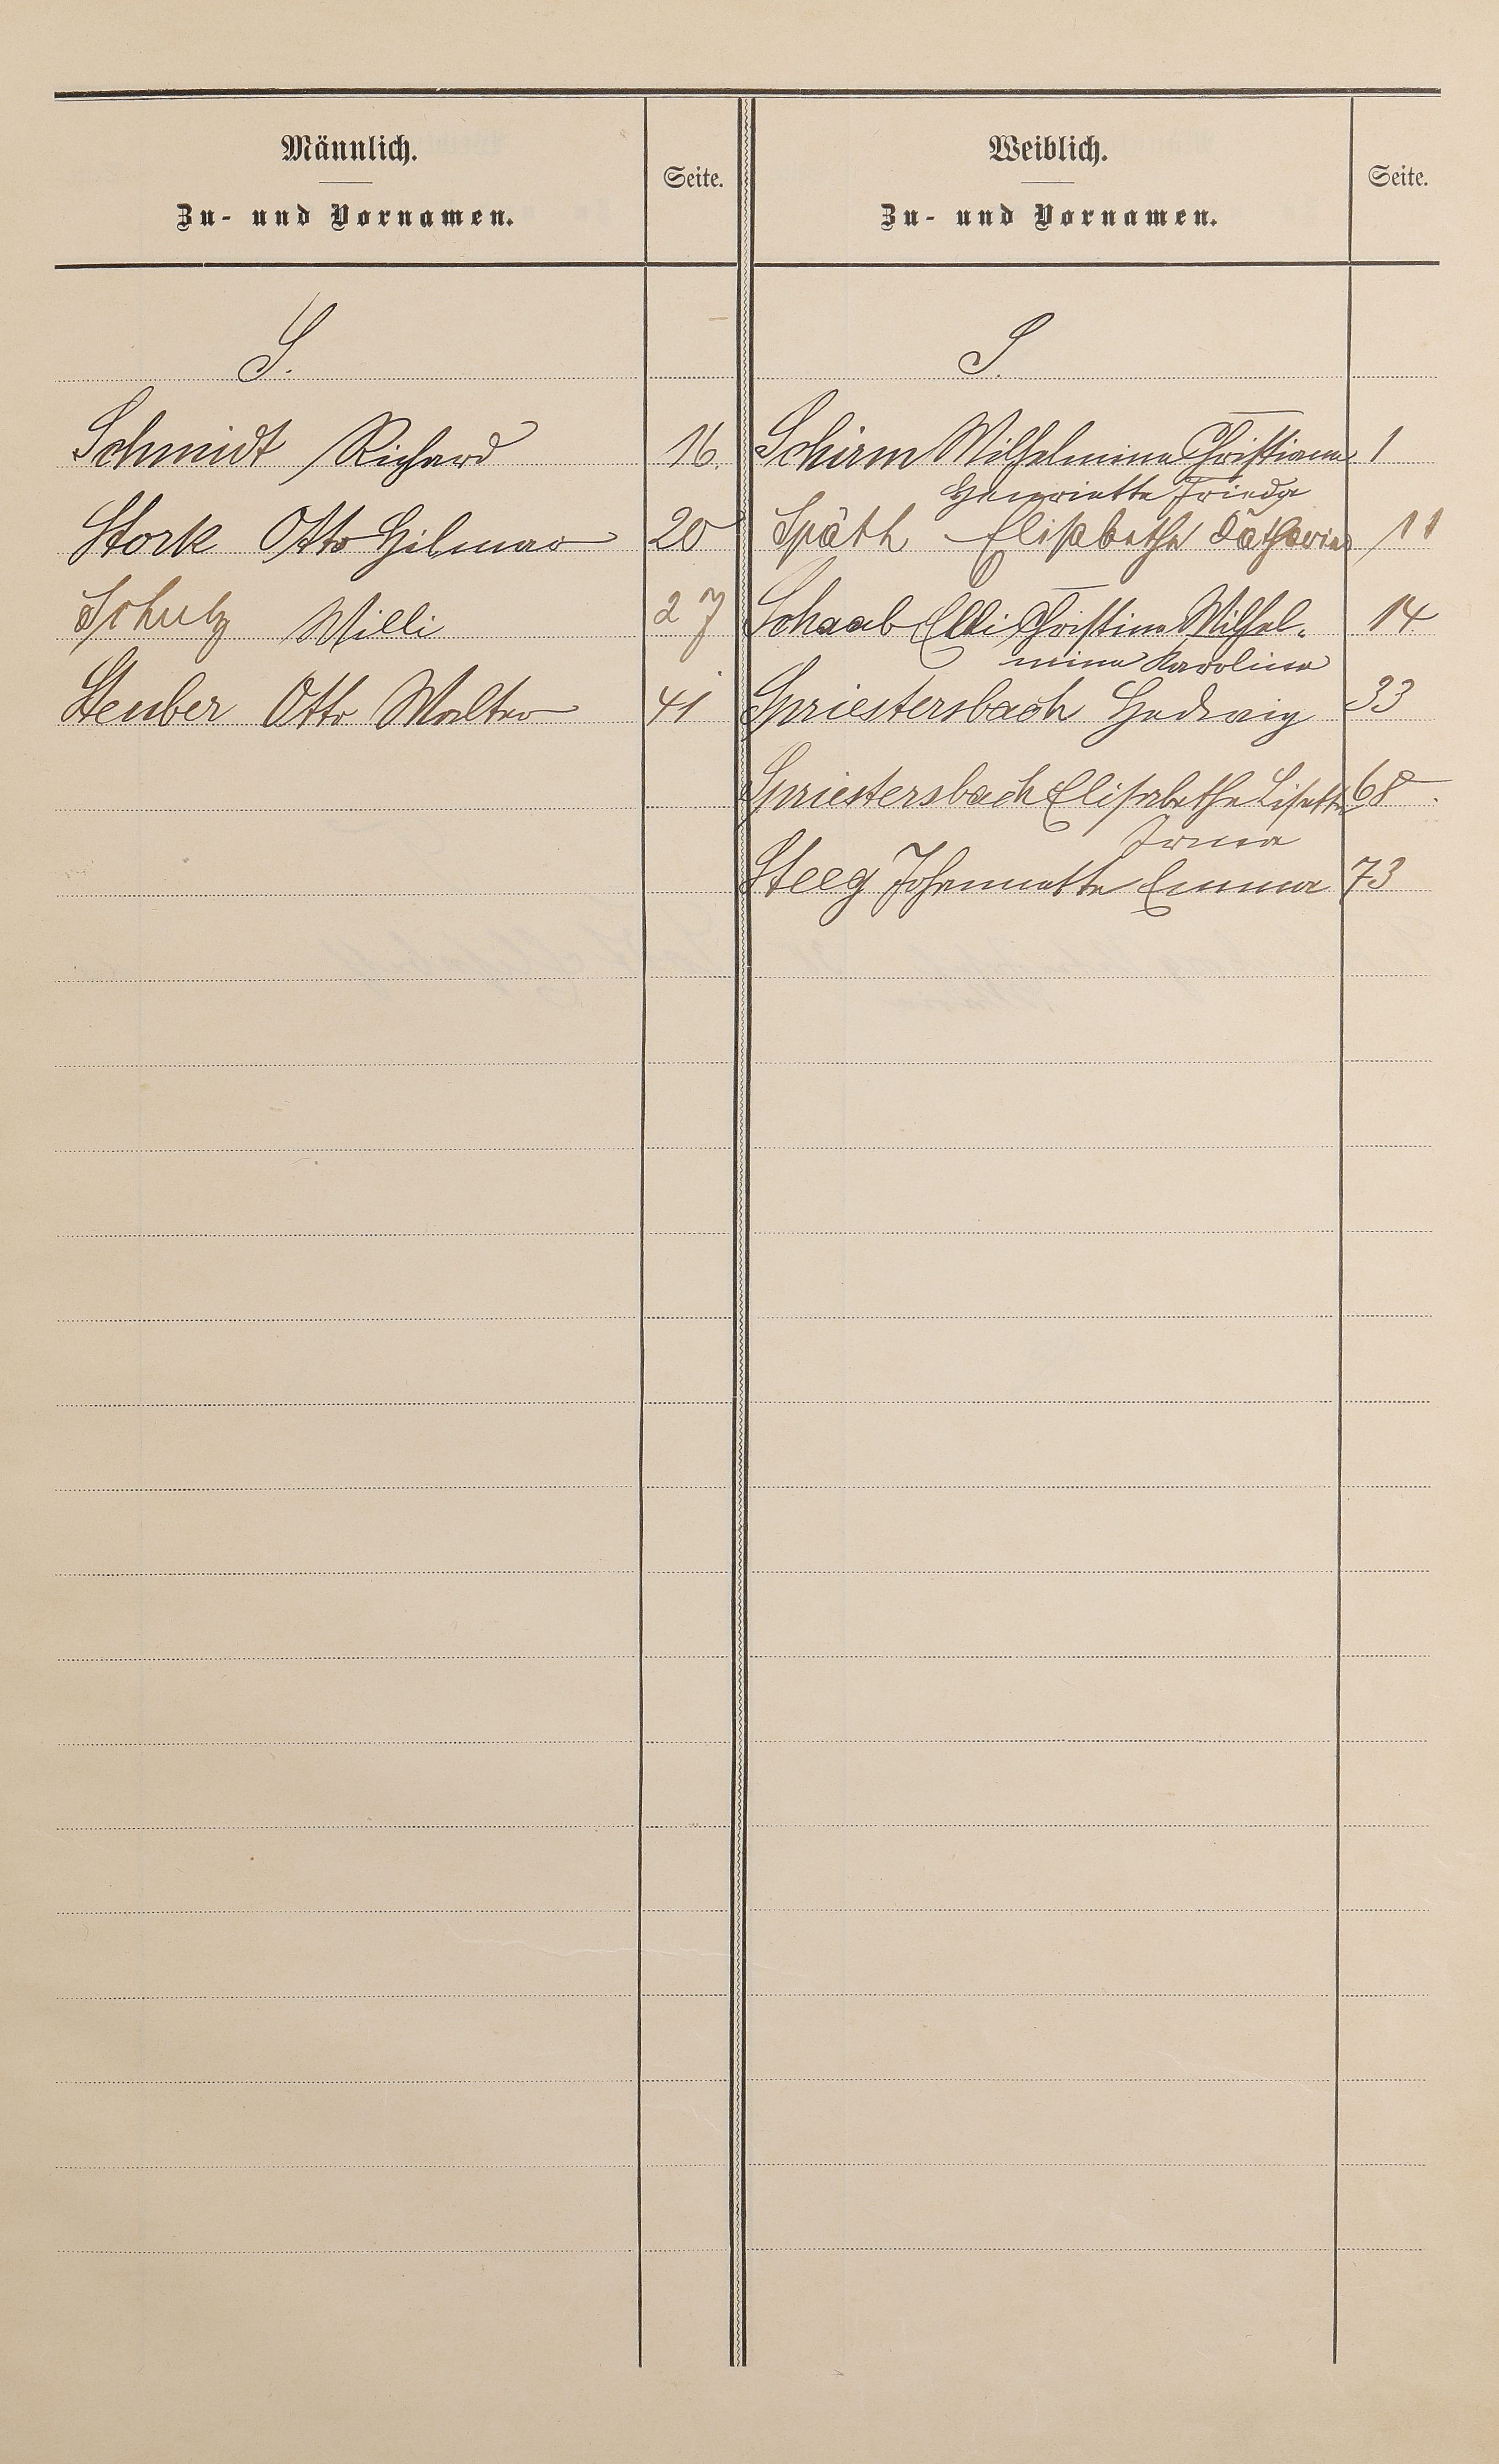 Männlich.
Zu- und Vornamen.
Seite.
Weiblich.
Zu- und Vornamen.
Seite.
S.
Schmidt Richard 16.
Stork Otto Hilmar 20
Schulz Willi 27
Steuber Otto Walter 41
S.
Schirm Wilhelmine Christiane 1
Henriette Frieda
Späth Elisabethe Katharine 11
Schaab Elli Christine Wilhel-
mine Karoline 14
Spriestersbach Hedwig 33
Spriestersbach Elisabethe Lisette 68
Irma
Steeg Johannette Emma 73